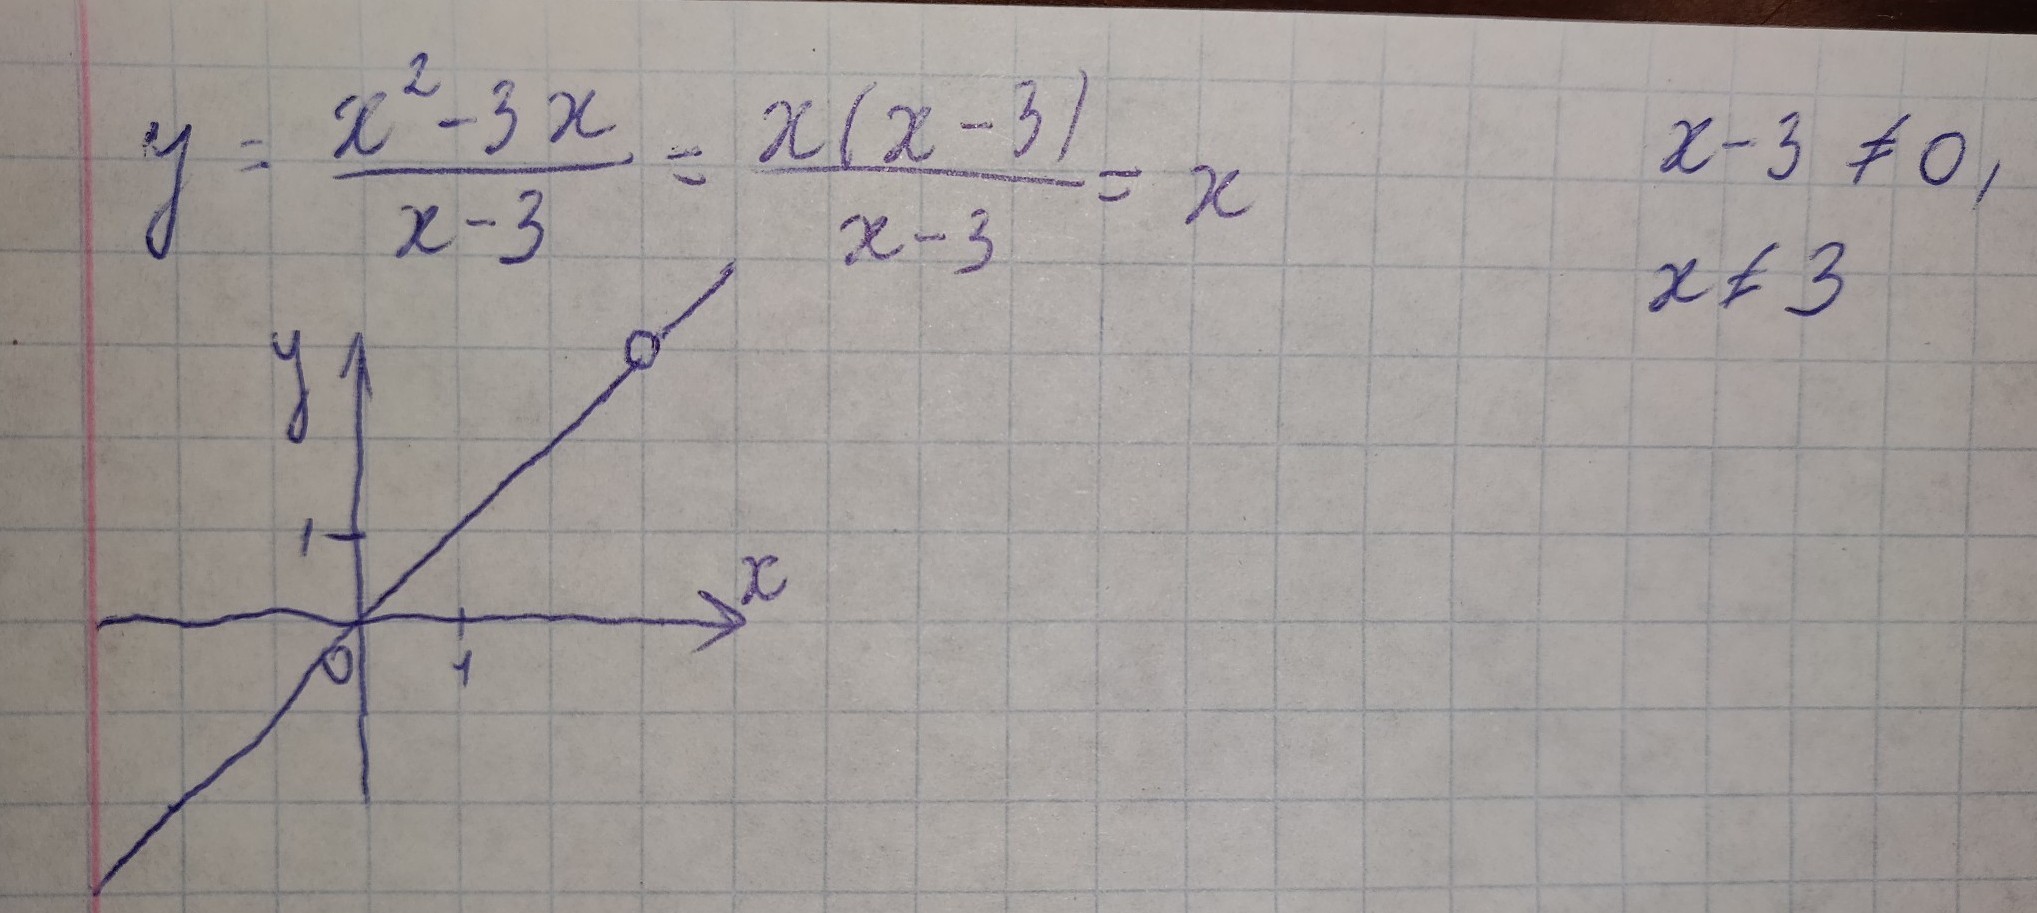 y = (x² - 3x)/(x - 3) = x(x - 3)/(x - 3) = x
x - 3 ≠ 0,
x ≠ 3
y
1
x
0 1